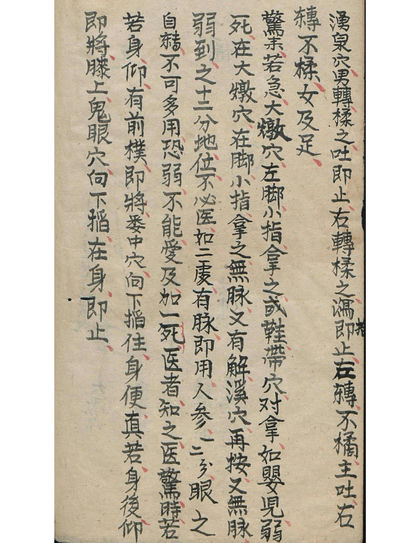 湧泉穴男轉揉之吐即止右轉揉之瀉即止左轉不揉主吐右
轉不揉女反足
驚来若急大燉穴左脚小指拿之或鞋帶穴对拿如嬰児弱
死在大燉穴在脚小指拿之無脉又有解溪穴再按又無脉
弱到之十二分地位不必医如二處有脉即用人参一二分眼之
自轉不可多用恐弱不能愛及如一死医者知之医驚時若
若身仰有前樸即將委中穴向下掐住身便真若身後仰
即將膝上鬼眼穴向下掐在身即止